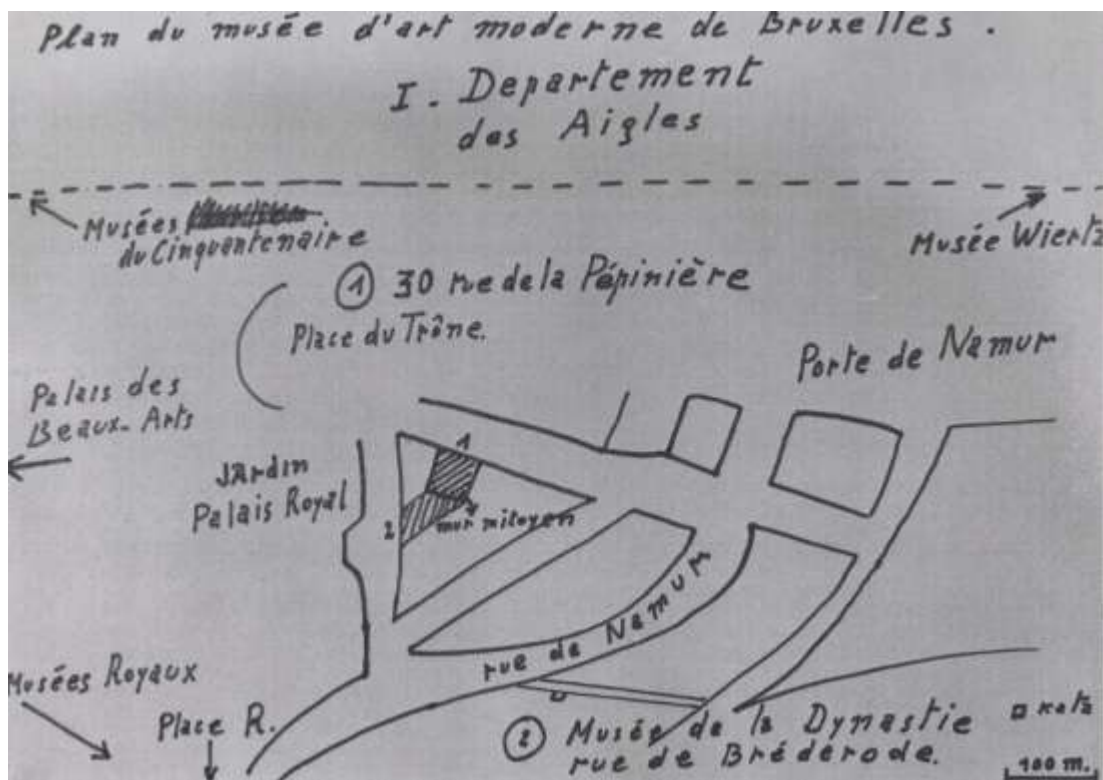 Plan du musée d'art moderne de Bruxelles.
I. Departement
des Aigles
Musées
du Cinquantenaire
Musée Wiertz
① 30 rue de la Pépinière
Place du Trône.
Porte de Namur
Palais des
Beaux-Arts
1
JArdin
Palais Royal
2
mur mitoyen
rue de Namur
Musées Royaux
Place R.
② Musée de la Dynastie
rue de Bréderode.
Katz
100 m.